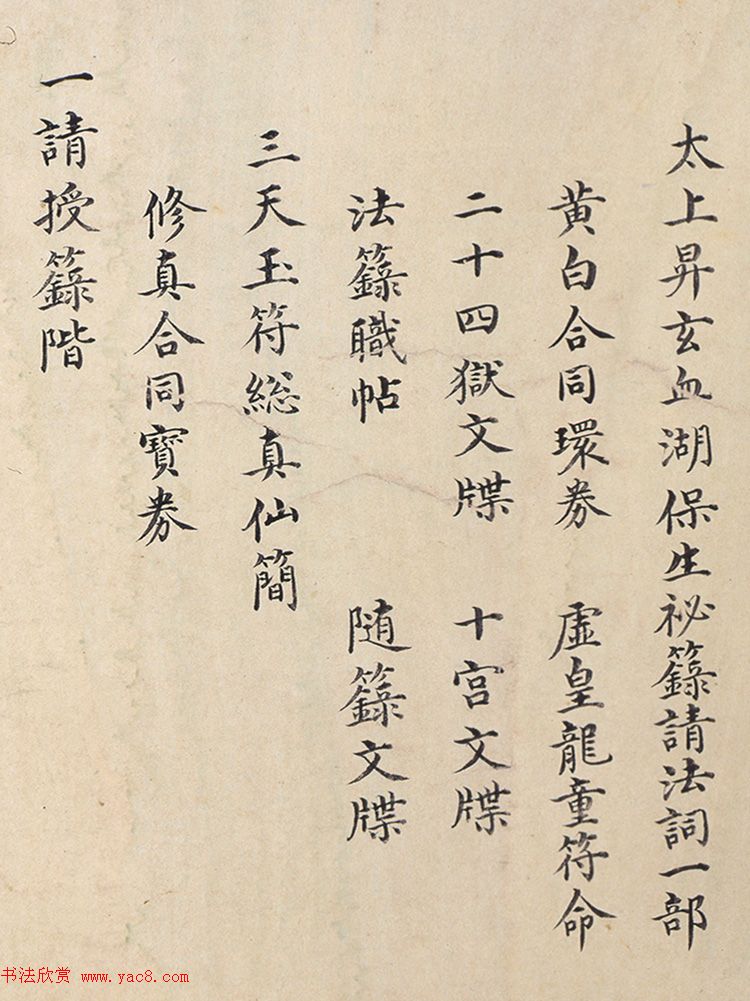 太上昇玄血湖保生祕籙請法詞一部
黄白合同環券 虛皇龍童符命
二十四獄文牒 十宮文牒
法籙職帖 随籙文牒
三天玉符總真仙簡
修真合同寳券
一請授籙階
书法欣赏 www.yac8.com